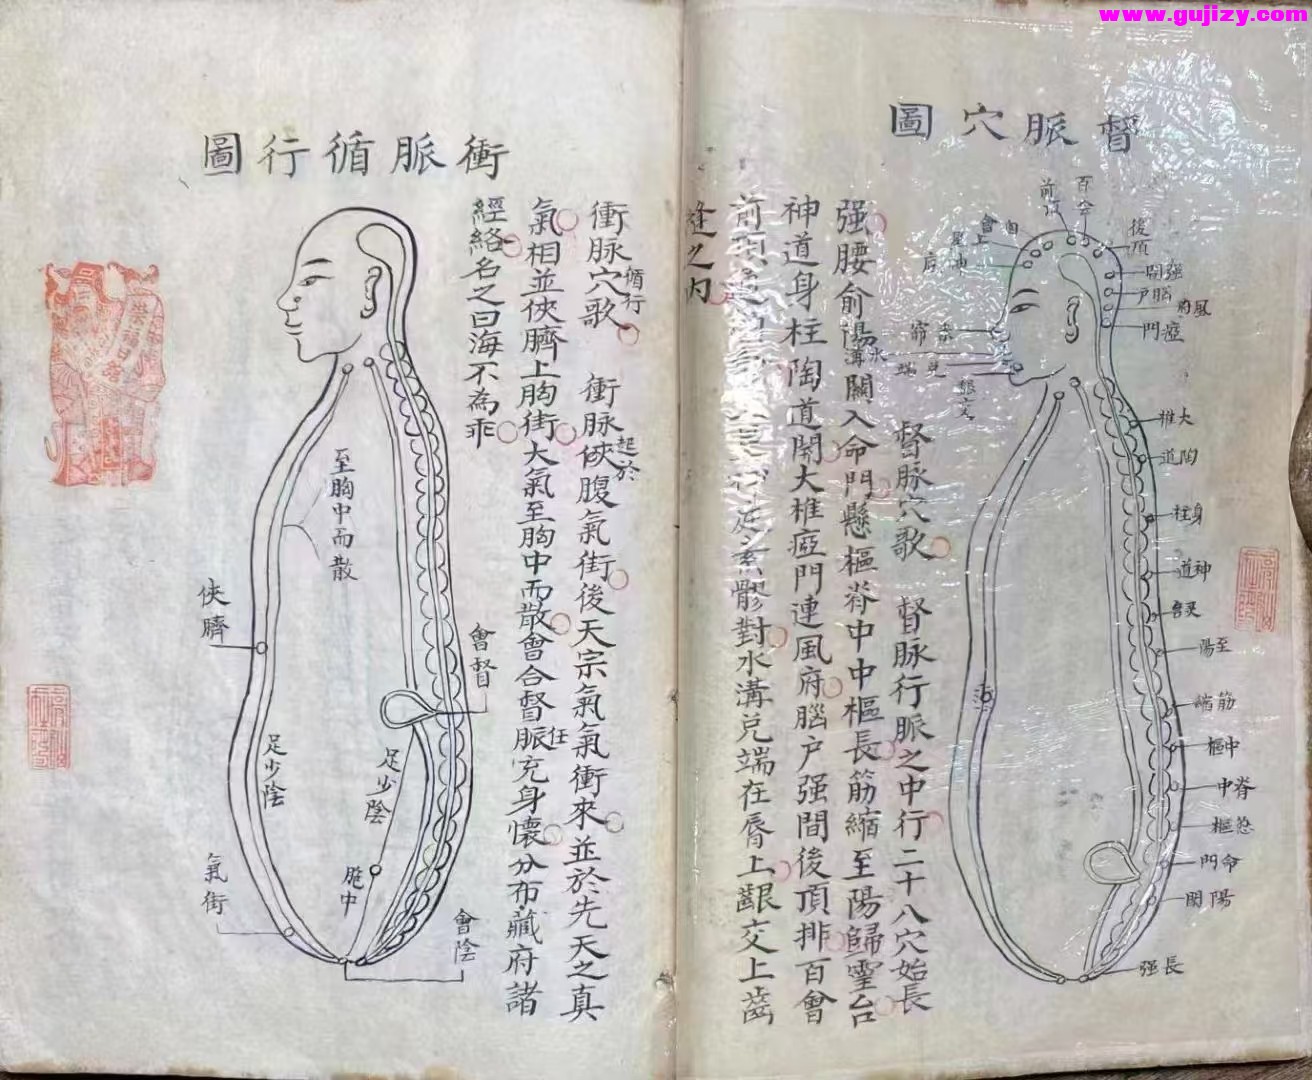 www.gujizy.com
督脈穴圖
督脉穴歌 督脉行脈之中行二十八穴始長
强腰俞陽關入命門懸樞脊中中樞長筋縮至陽歸靈台
水溝
神道身柱陶道開大椎瘂門連風府腦户强間後頂排百會
前頂
對水溝兑端在唇上齦交上齒
縫之内
百会
前頂
後頂
强間
腦戶
風府
瘂門
大椎
陶道
身柱
神道
灵台
至陽
筋縮
中樞
脊中
命門
陽関
長强
衝脈循行圖
衝脉穴歌 衝脉俠腹氣街後天宗氣氣衝來並於先天之真
循行
起於
氣相並俠臍上胸街大氣至胸中而散會合督脈充身懷分布藏府諸
任
經絡名之曰海不為乖
至胸中而散
俠臍
會督
足少陰
足少陰
胞中
氣街
會陰